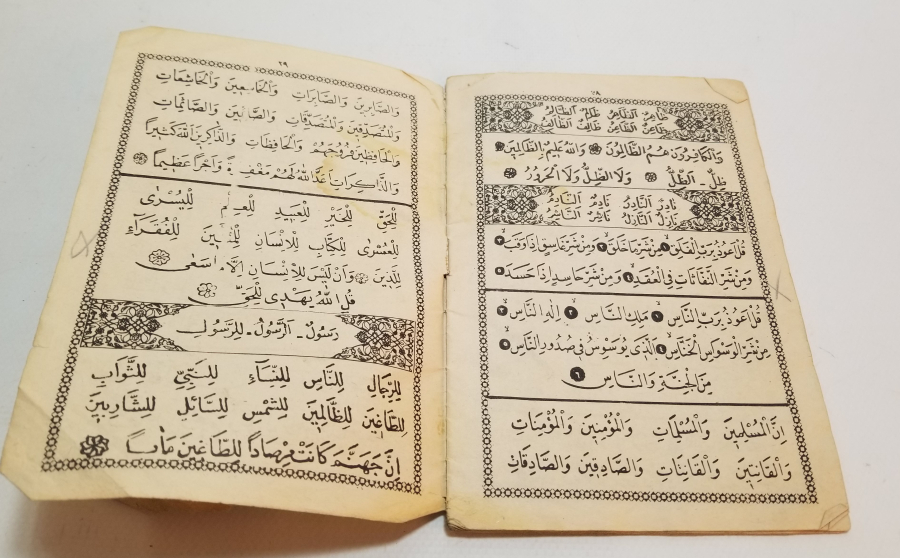 ٢٨
ظَاهِرٌ اَلظَّاهِرُ ظَالِمٌ اَلظَّالِمُ
طَاعِنٌ اَلطَّاعِنُ طَالِفٌ اَلطَّالِفُ
وَالْكَافِرُونَ هُمُ الظَّالِمُونَ وَاللّٰهُ عَلِيمٌ بِالظَّالِمِينَ
ظِلٌّ ـ اَلظِّلُّ وَلَا الظِّلُّ وَلَا الْحَرُورُ
نَادِرٌ اَلنَّادِرُ نَادِمٌ اَلنَّادِمُ
نَازِلٌ اَلنَّازِلُ نَاشِرٌ اَلنَّاشِرُ
قُلْ اَعُوذُ بِرَبِّ الْفَلَقِ ١ مِنْ شَرِّ مَا خَلَقَ ٢ وَمِنْ شَرِّ غَاسِقٍ اِذَا وَقَبَ ٣
وَمِنْ شَرِّ النَّفَّاثَاتِ فِي الْعُقَدِ ٤ وَمِنْ شَرِّ حَاسِدٍ اِذَا حَسَدَ ٥
قُلْ اَعُوذُ بِرَبِّ النَّاسِ ١ مَلِكِ النَّاسِ ٢ اِلٰهِ النَّاسِ ٣
مِنْ شَرِّ الْوَسْوَاسِ الْخَنَّاسِ ٤ اَلَّذِي يُوَسْوِسُ فِي صُدُورِ النَّاسِ ٥
مِنَ الْجِنَّةِ وَالنَّاسِ ٦
اِنَّ الْمُسْلِمِينَ وَالْمُسْلِمَاتِ وَالْمُؤْمِنِينَ وَالْمُؤْمِنَاتِ
وَالْقَانِتِينَ وَالْقَانِتَاتِ وَالصَّادِقِينَ وَالصَّادِقَاتِ
٢٩
وَالصَّابِرِينَ وَالصَّابِرَاتِ وَالْخَاشِعِينَ وَالْخَاشِعَاتِ
وَالْمُتَصَدِّقِينَ وَالْمُتَصَدِّقَاتِ وَالصَّائِمِينَ وَالصَّائِمَاتِ
وَالْحَافِظِينَ فُرُوجَهُمْ وَالْحَافِظَاتِ وَالذَّاكِرِينَ اللّٰهَ كَثِيرًا
وَالذَّاكِرَاتِ اَعَدَّ اللّٰهُ لَهُمْ مَغْفِرَةً وَاَجْرًا عَظِيمًا
لِلْحَقِّ لِلْخَيْرِ لِلْعَبِيدِ لِلْعِلْمِ لِلْيُسْرٰى
لِلْعُسْرٰى لِلْكِتَابِ لِلْاِنْسَانِ لِلْفُقَرَاءِ
لِلَّذِينَ وَاَنْ لَيْسَ لِلْاِنْسَانِ اِلَّا مَا سَعٰى
قُلِ اللّٰهُ يَهْدِي لِلْحَقِّ
رَسُولٌ ـ اَلرَّسُولُ ـ لِلرَّسُولِ
لِلرِّجَالِ لِلنَّاسِ لِلنِّسَاءِ لِلنَّبِيِّ لِلثَّوَابِ
لِلطَّاغِينَ لِلظَّالِمِينَ لِلشَّمْسِ لِلسَّائِلِ لِلشَّارِبِينَ
اِنَّ جَهَنَّمَ كَانَتْ مِرْصَادًا لِلطَّاغِينَ مَاٰبًا